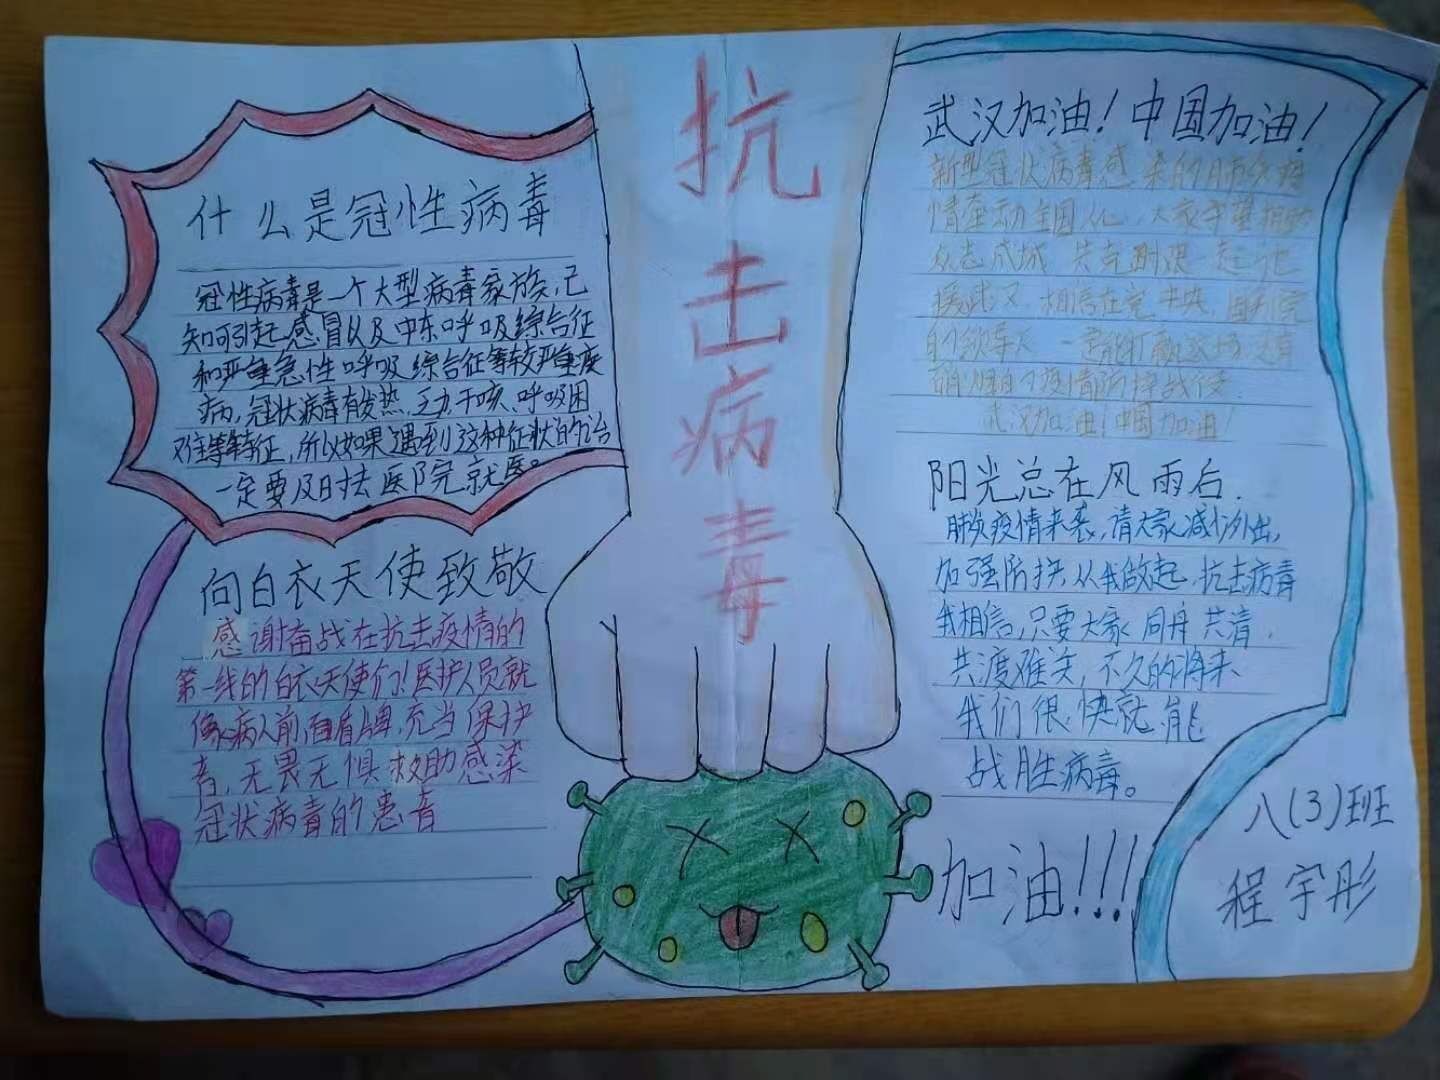 什么是冠性病毒
冠性病毒是一个大型病毒家族,已
知可引起感冒以及中东呼吸综合征
和严重急性呼吸综合征等较严重疾
病,冠状病毒有发热,乏力,干咳、呼吸困
难等特征,所以如果遇到这种症状的
一定要及时去医院就医。
向白衣天使致敬
感谢奋战在抗击疫情的
第一线的白衣天使们!医护人员就
像病人前面盾牌,充当保护
者,无畏无惧救助感染
冠状病毒的患者
抗击病毒
武汉加油!中国加油!
新型冠状病毒感 的肺炎疫
情牵动全国人 ,大家守望相助
众志成城 共克 一起
援武汉,相信在党中央,国务院
的领导下,一定能打赢这场没有
硝烟的疫情防控战役.
武汉加油!中国加油!
阳光总在风雨后.
肺炎疫情来袭,请大家减少外出,
加强防护从我做起 抗击病毒
我相信,只要大家同舟共济,
共渡难关,不久的将来
我们很快就能
战胜病毒。
加油!!!
八(3)班
程宇彤